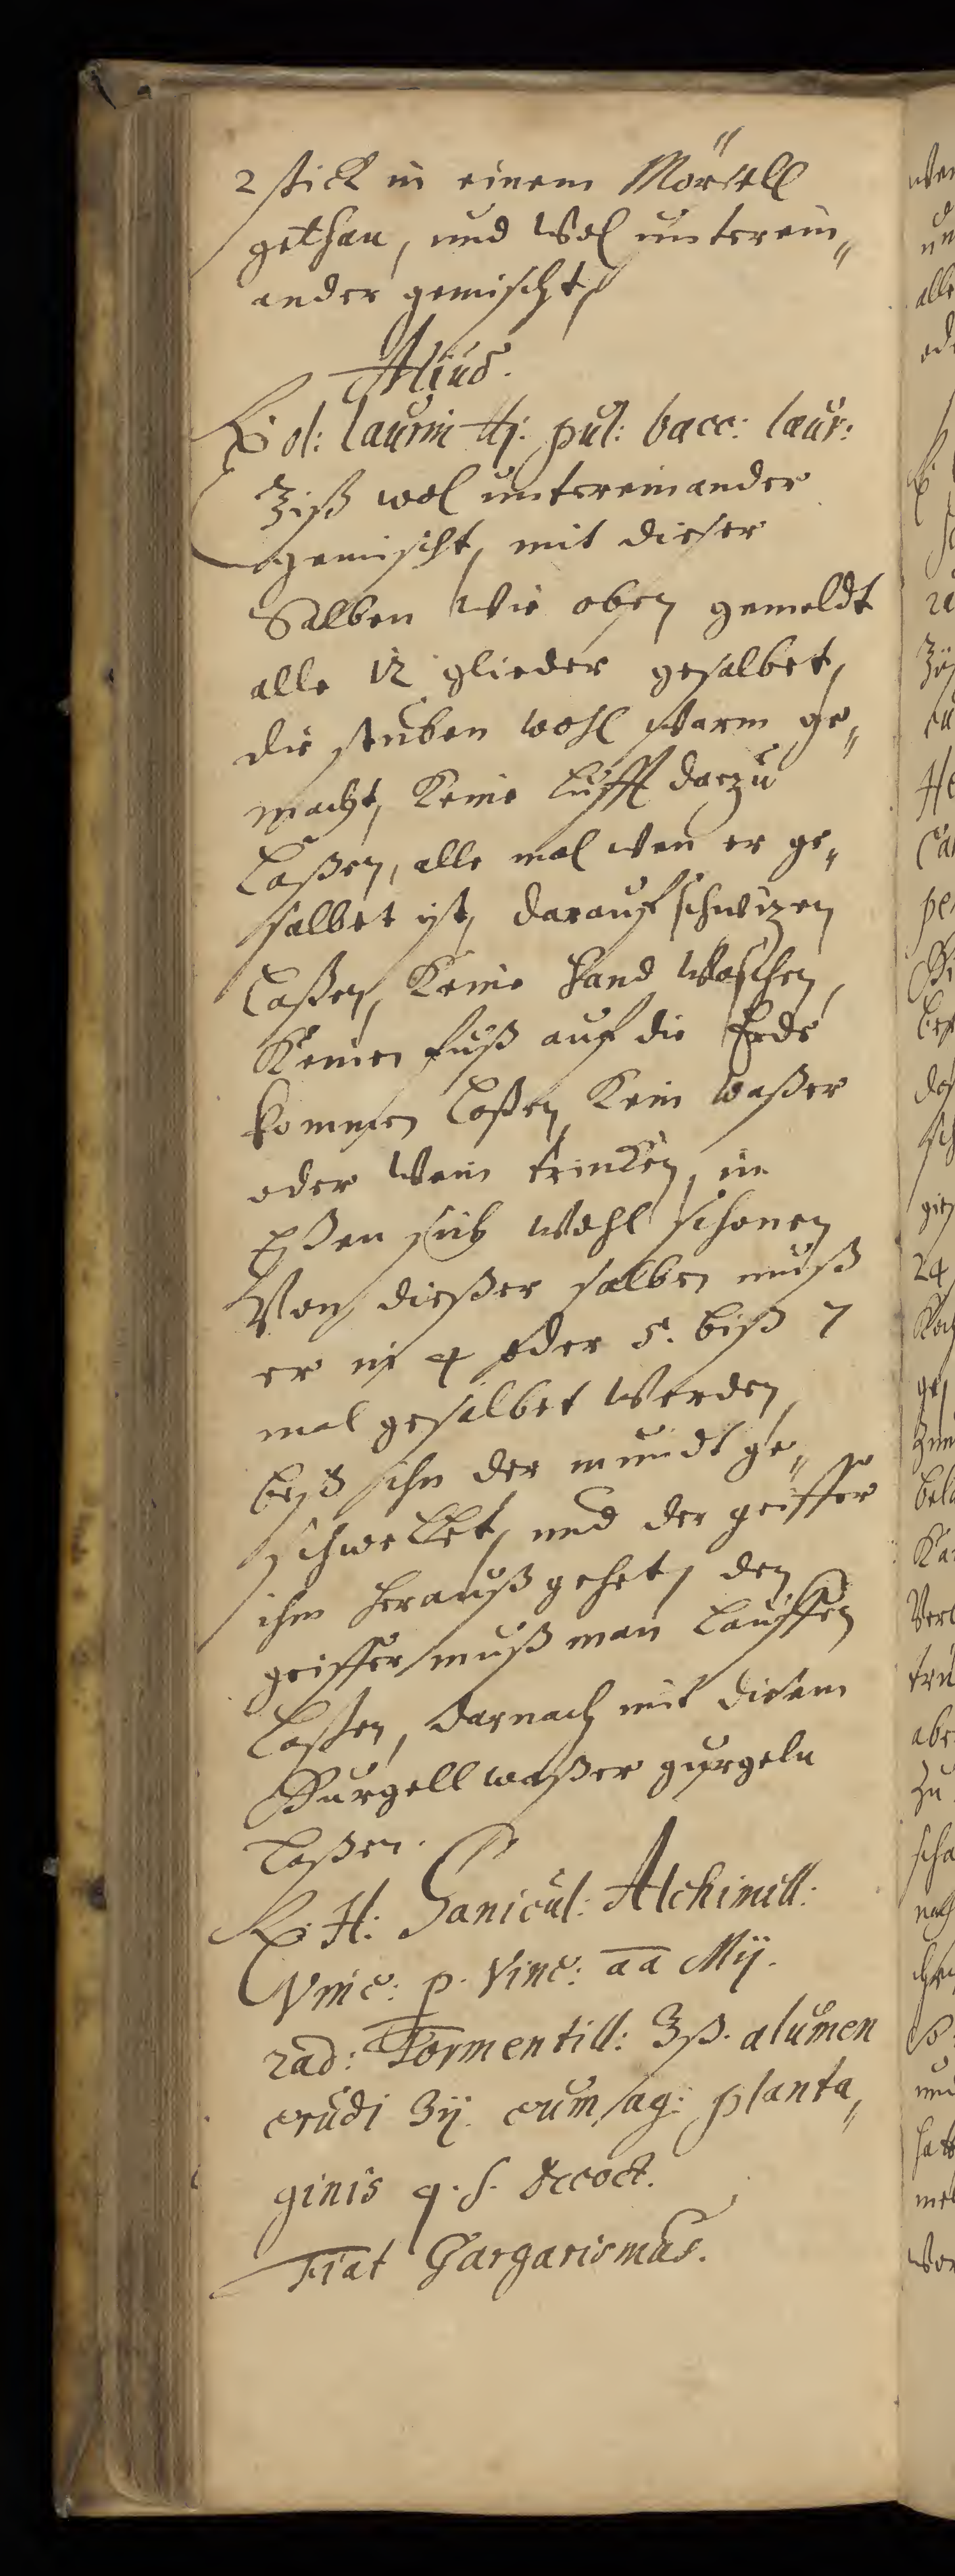 2 stick in einem Mörsell
gethan, und Wol unterein„
ander gemischt,
Aliud.
℞ ol: laurin ℔j. pul: bacc: laur:
ʒiß wol untereinander
gemischt, mit dieser
Salben Wie oben gemeldt
alle 12 glieder gesalbet,
die stuben wohl Warm ge„
macht, Keine Lufft darzu
Laßen, alle mal Wen er ge„
salbet ist, darauf schwizen
Laßen, Keine hand Waschen,
Keinen fuß auf die Erde
kommen Laßen, Kein waßer
oder Wein trincken, im
Eßen sich Wohl schonen
Von dießer salben muß
er in 4 oder 5. biß 7
mal gesalbet Werden,
biß ihn der mundt ge„
schwellet, und der geiffer
ihm herauß gehet, den
geiffer muß man Lauffen
Laßen, darnach mit diesem
Gurgell waßer gurgeln
Laßen.
℞. H: Sanicul: Alchimill:
Vinc: p. Vinc: aa Mij.
rad: Tormentill: ʒß. alumen
crudi ʒij. cum aq: planta„
ginis q. s. decoct.
Fiat Gargarismus.